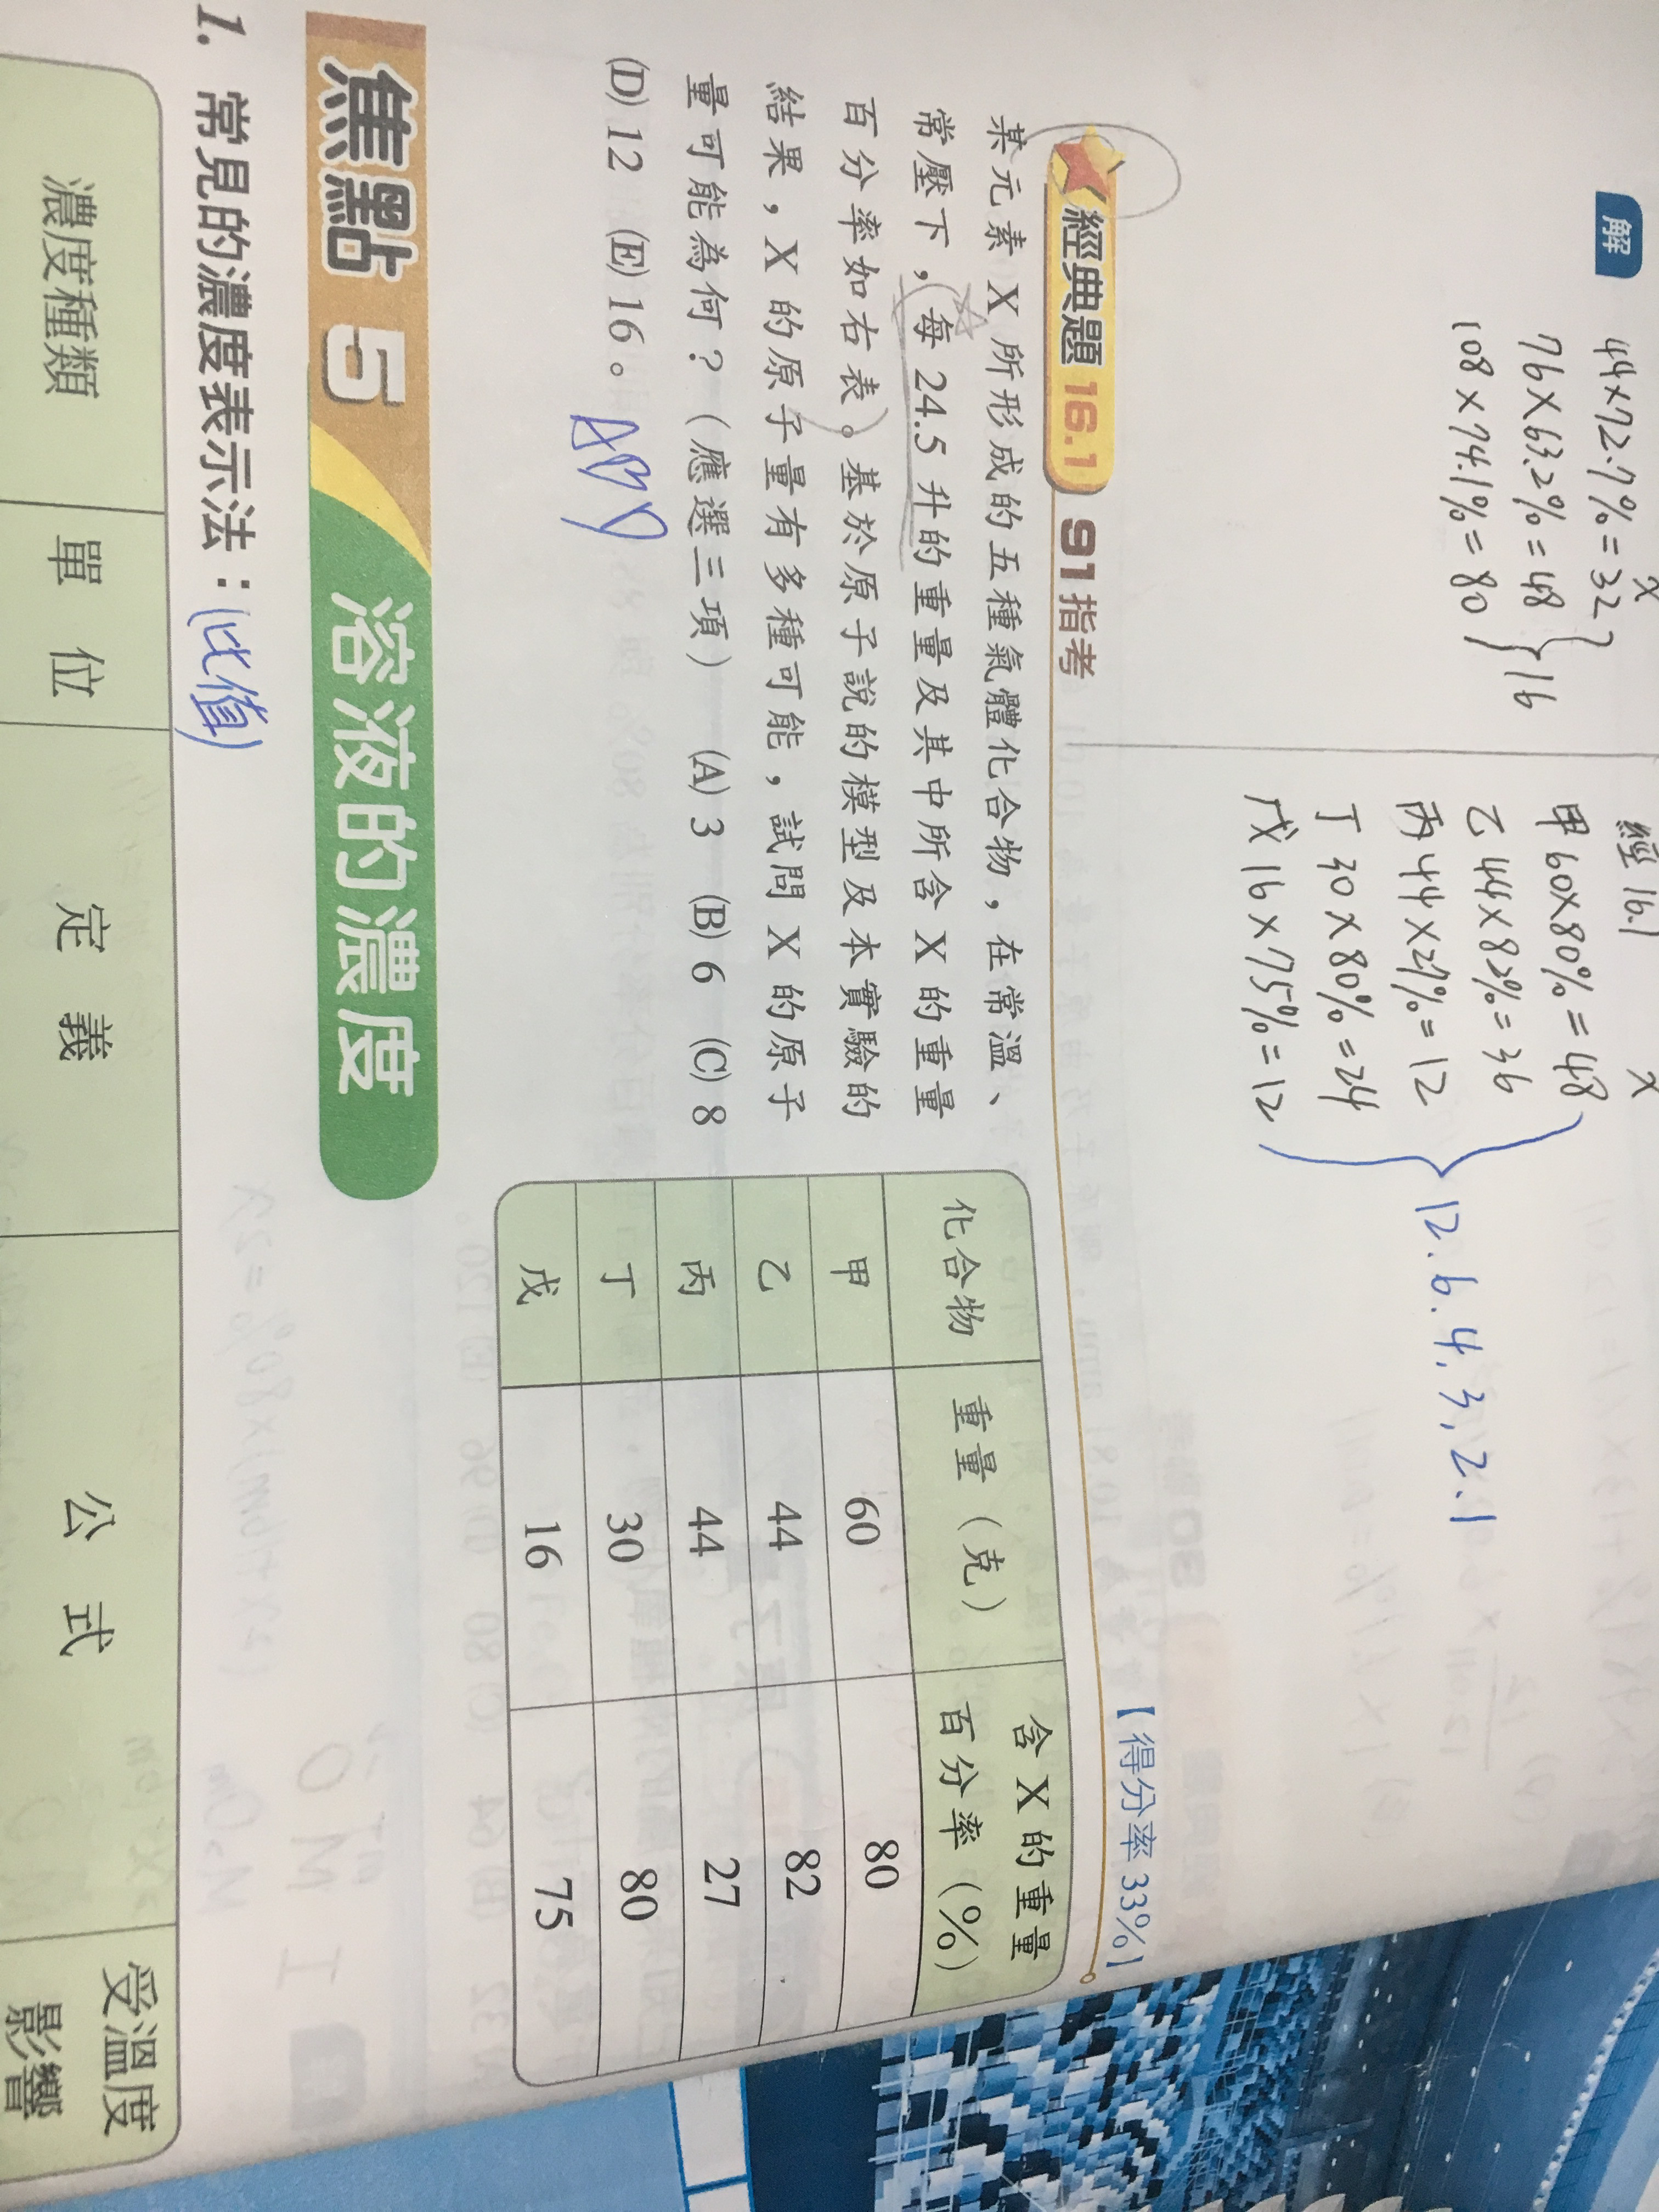 解
x
44×72.7%=32
76×63.2%=48
108×74.1%=80
16
經16.1
x
甲 60×80%=48
乙 44×82%=36
丙 44×27%=12
丁 30×80%=24
戊 16×75%=12
12.6.4.3,2.1
經典題 16.1 91指考
【得分率 33%】
某元素 X 所形成的五種氣體化合物，在常溫、
常壓下，每 24.5 升的重量及其中所含 X 的重量
百分率如右表。基於原子說的模型及本實驗的
結果，X 的原子量有多種可能，試問 X 的原子
量可能為何？（應選三項） (A) 3 (B) 6 (C) 8
(D) 12 (E) 16。
化合物 重量（克） 含 X 的重量百分率（%）
甲 60 80
乙 44 82
丙 44 27
丁 30 80
戊 16 75
焦點 5 溶液的濃度
1. 常見的濃度表示法：(比值)
濃度種類 單位 定義 公式 受溫度影響